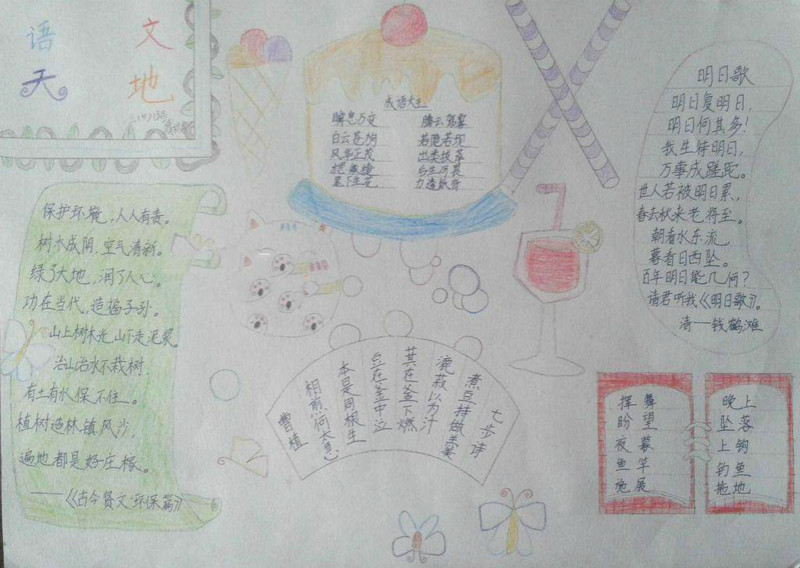 语 文
天 地
保护环境,人人有责。
树木成阴,空气清新。
绿了大地,润了人心。
功在当代,造福子孙。
山上树木光,山下走泥浆
治山治水不栽树,
有土有水保不住。
植树造林镇风沙,
遍地都是好庄稼。
——《古今贤文·环保篇》
成语大王
瞬息万变 腾云驾雾
白云苍狗 若隐若现
风华正茂 出类拔萃
敏捷 后生可畏
笔下生花 力透纸背
七步诗
煮豆持做羹
漉菽以为汁
萁在釜下燃
豆在釜中泣
本是同根生
相煎何太急
曹植
明日歌
明日复明日,
明日何其多!
我生待明日,
万事成蹉跎。
世人若被明日累,
春去秋来老将至。
朝看水东流,
暮看日西坠。
百年明日能几何?
请君听我《明日歌》。
清—钱鹤滩
挥舞
盼望
夜幕
鱼竿
施展
晚上
坠落
上钩
钓鱼
拖地